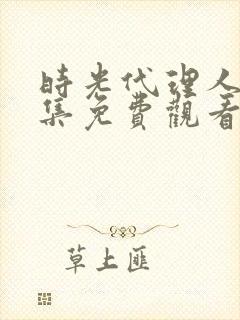 時光代理人
集免費觀看
草上匪